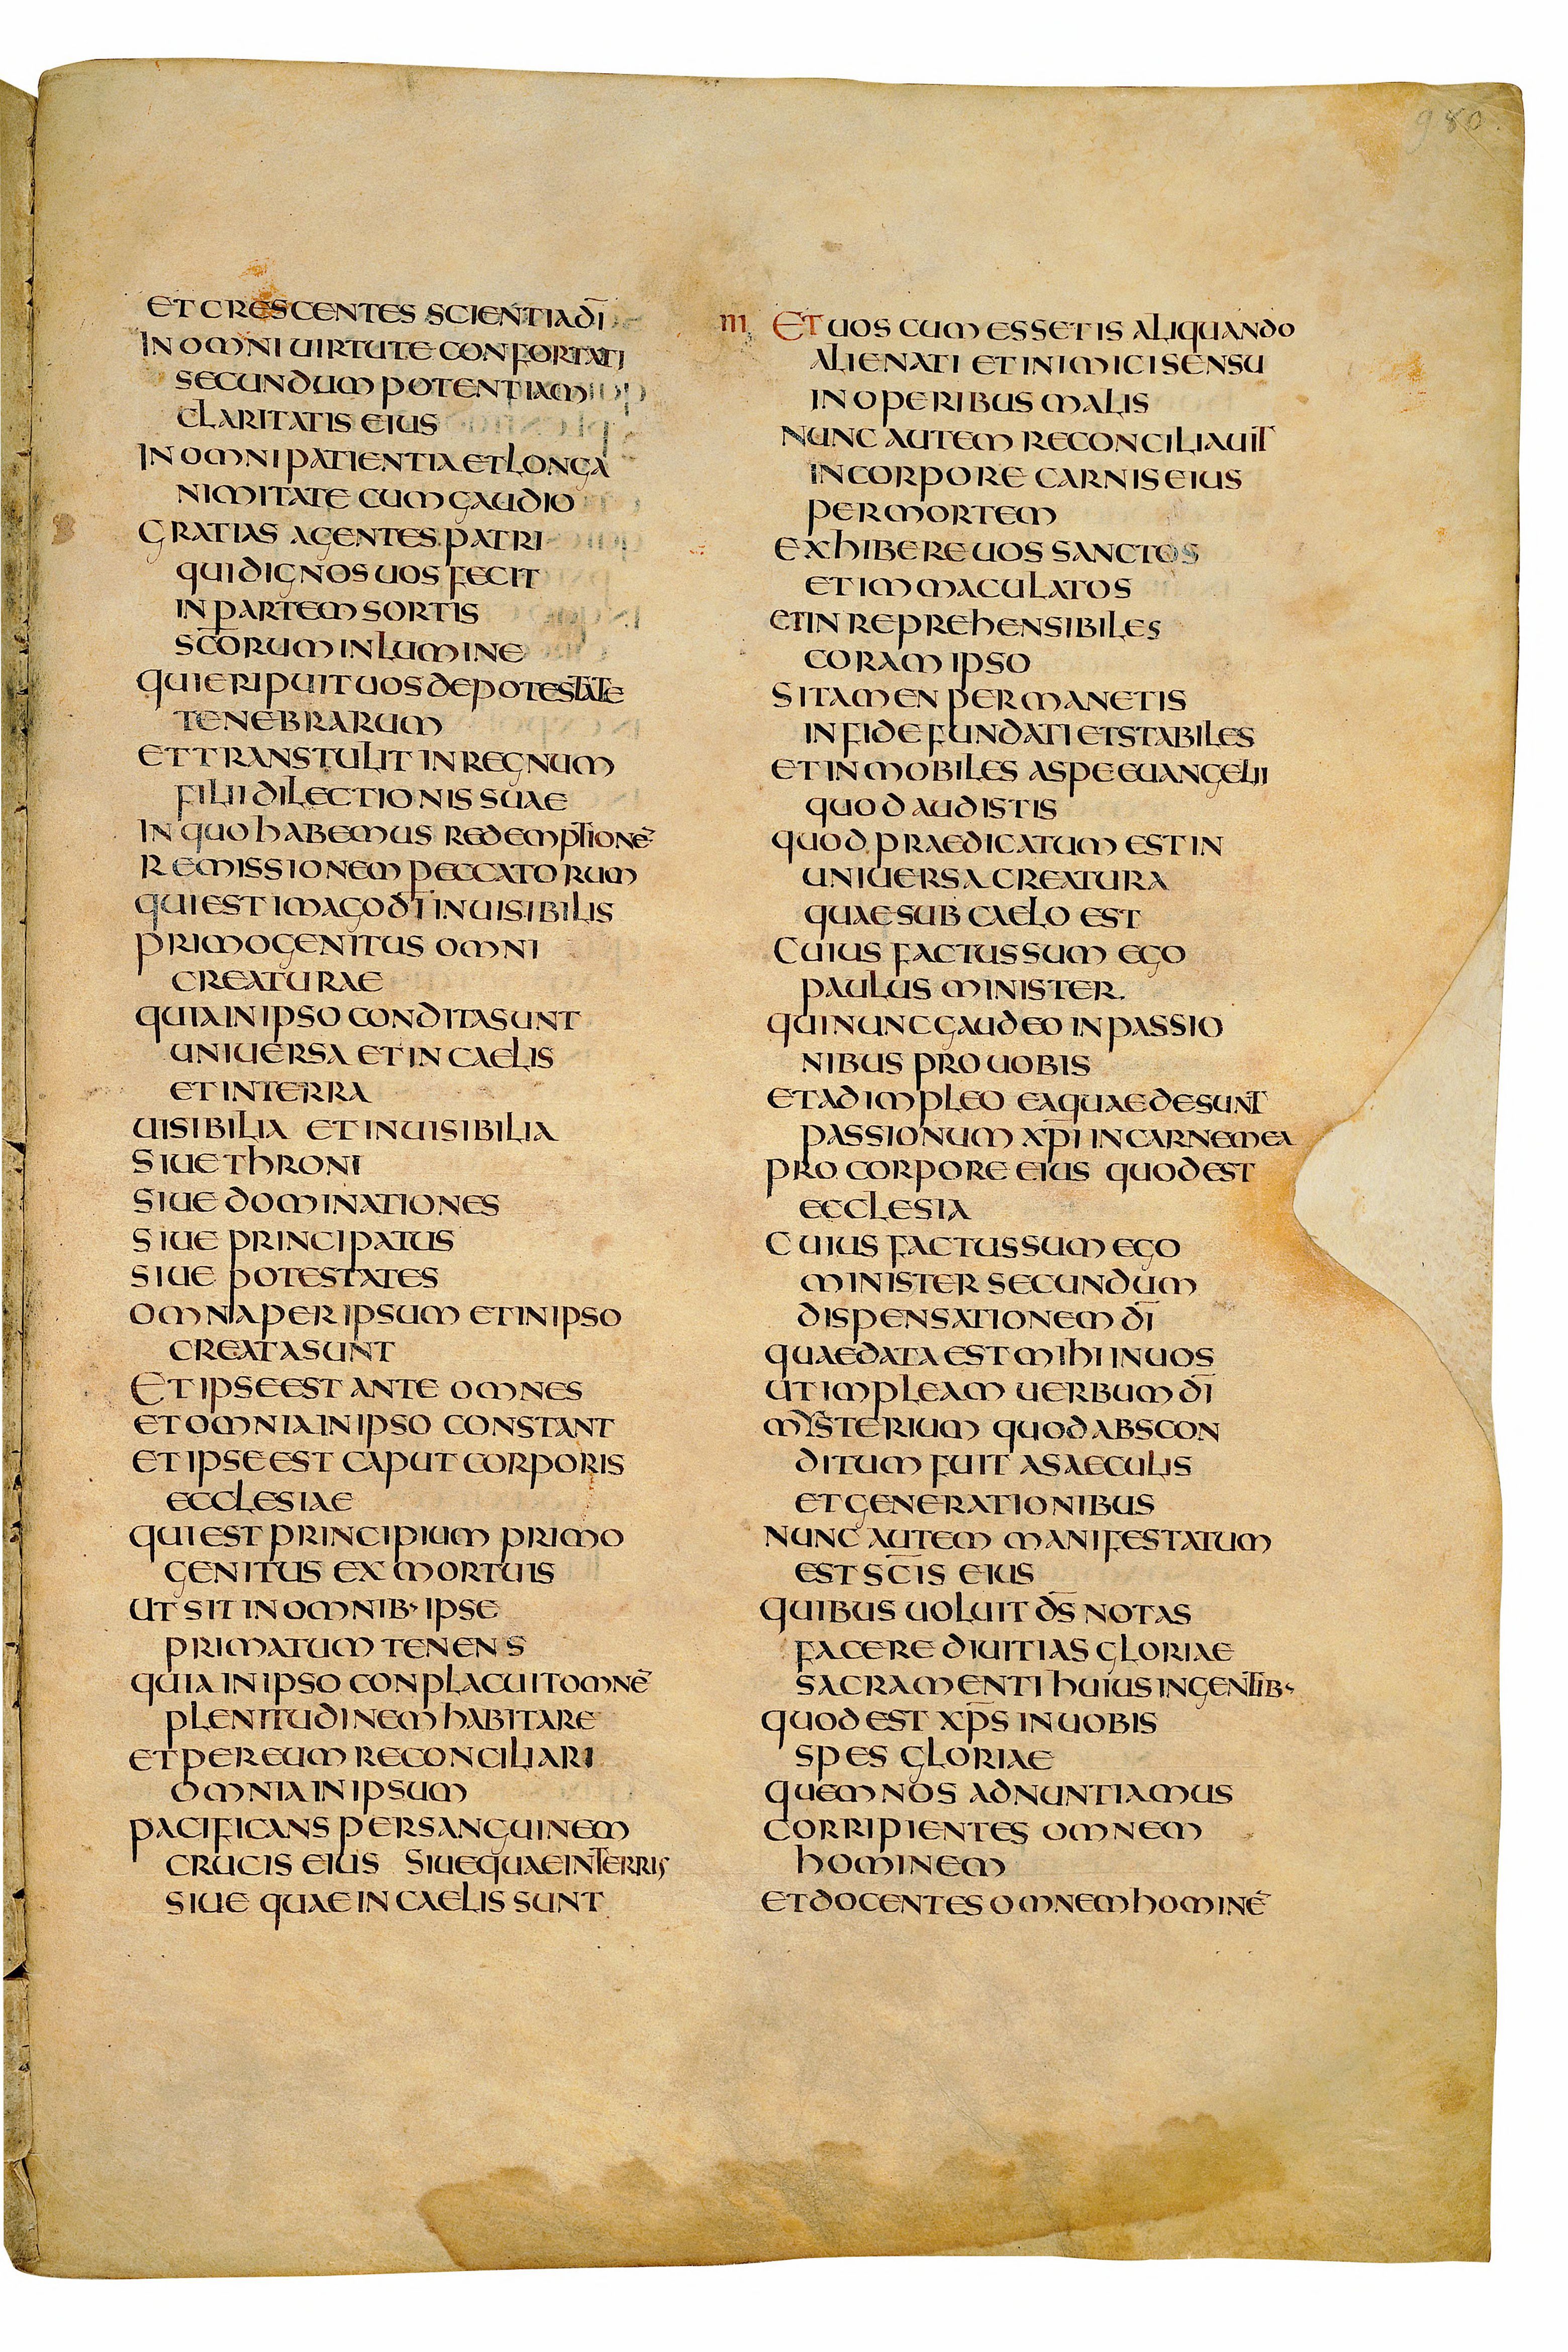 ET CRESCENTES SCIENTIA DI̅
IN OMNI UIRTUTE CONFORTATI
SECUNDUM POTENTIAM
CLARITATIS EIUS
IN OMNI PATIENTIA ET LONGA
NIMITATE CUM GAUDIO
GRATIAS AGENTES PATRI
QUI DIGNOS UOS FECIT
IN PARTEM SORTIS
SC̅ORUM IN LUMINE
QUI ERIPUIT UOS DE POTESTATE
TENEBRARUM
ET TRANSTULIT IN REGNUM
FILII DILECTIONIS SUAE
IN QUO HABEMUS REDEMPTIONE̅
REMISSIONEM PECCATORUM
QUI EST IMAGO DI̅ INUISIBILIS
PRIMOGENITUS OMNI
CREATURAE
QUIA IN IPSO CONDITA SUNT
UNIUERSA ET IN CAELIS
ET IN TERRA
UISIBILIA ET INUISIBILIA
SIUE THRONI
SIUE DOMINATIONES
SIUE PRINCIPATUS
SIUE POTESTATES
OMNIA PER IPSUM ET IN IPSO
CREATA SUNT
ET IPSE EST ANTE OMNES
ET OMNIA IN IPSO CONSTANT
ET IPSE EST CAPUT CORPORIS
ECCLESIAE
QUI EST PRINCIPIUM PRIMO
GENITUS EX MORTUIS
UT SIT IN OMNIB· IPSE
PRIMATUM TENENS
QUIA IN IPSO CONPLACUIT OMNE̅
PLENITUDINEM HABITARE
ET PER EUM RECONCILIARI
OMNIA IN IPSUM
PACIFICANS PER SANGUINEM
CRUCIS EIUS SIUE QUAE IN TERRIS
SIUE QUAE IN CAELIS SUNT
980.
III ET UOS CUM ESSETIS ALIQUANDO
ALIENATI ET INIMICI SENSU
IN OPERIBUS MALIS
NUNC AUTEM RECONCILIAUIT
IN CORPORE CARNIS EIUS
PER MORTEM
EXHIBERE UOS SANCTOS
ET IMMACULATOS
ET INREPREHENSIBILES
CORAM IPSO
SI TAMEN PERMANETIS
IN FIDE FUNDATI ET STABILES
ET INMOBILES A SPE EUANGELII
QUOD AUDISTIS
QUOD PRAEDICATUM EST IN
UNIUERSA CREATURA
QUAE SUB CAELO EST
CUIUS FACTUS SUM EGO
PAULUS MINISTER.
QUI NUNC GAUDEO IN PASSIO
NIBUS PRO UOBIS
ET ADIMPLEO EA QUAE DESUNT
PASSIONUM XP̅I IN CARNE MEA
PRO CORPORE EIUS QUOD EST
ECCLESIA
CUIUS FACTUS SUM EGO
MINISTER SECUNDUM
DISPENSATIONEM DI̅
QUAE DATA EST MIHI IN UOS
UT IMPLEAM UERBUM DI̅
MYSTERIUM QUOD ABSCON
DITUM FUIT A SAECULIS
ET GENERATIONIBUS
NUNC AUTEM MANIFESTATUM
EST SC̅IS EIUS
QUIBUS UOLUIT DS̅ NOTAS
FACERE DIUITIAS GLORIAE
SACRAMENTI HUIUS IN GENTIB·
QUOD EST XP̅S IN UOBIS
SPES GLORIAE
QUEM NOS ADNUNTIAMUS
CORRIPIENTES OMNEM
HOMINEM
ET DOCENTES OMNEM HOMINE̅